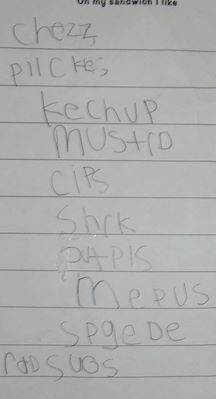 On my sandwich I like
chezz
pilckes
kechup
mustrd
cips
Shrk
Mepus
spgede